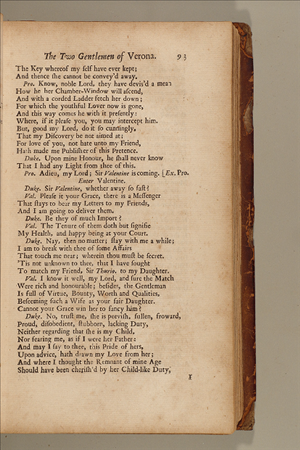 The Two Gentlemen of Verona. 93
The Key whereof my self have ever kept;
And thence she cannot be convey'd away.
Pro. Know, noble Lord, they have devis'd a mean
How he her Chamber-Window will ascend,
And with a corded Ladder fetch her down;
For which the youthful Lover now is gone,
And this way comes he with it presently:
Where, if it please you, you may intercept him.
But, good my Lord, do it so cunningly,
That my Discovery be not aimed at;
For love of you, not hate unto my Friend,
Hath made me Publisher of this Pretence.
Duke. Upon mine Honour, he shall never know
That I had any Light from thee of this.
Pro. Adieu, my Lord; Sir Valentine is coming. [Ex. Pro.
Enter Valentine.
Duke. Sir Valentine, whether away so fast?
Val. Please it your Grace, there is a Messenger
That stays to bear my Letters to my Friends,
And I am going to deliver them.
Duke. Be they of much Import?
Val. The Tenure of them doth but signifie
My Health, and happy being at your Court.
Duke. Nay, then no matter; stay with me a while;
I am to break with thee of some Affairs
That touch me near; wherein thou must be secret.
'Tis not unknown to thee, that I have sought
To match my Friend, Sir Thurio, to my Daughter.
Val. I know it well, my Lord, and sure the Match
Were rich and honourable; besides, the Gentleman
Is full of Virtue, Bounty, Worth and Qualities,
Beseeming such a Wife as your fair Daughter.
Cannot your Grace win her to fancy him?
Duke. No, trust me, she is peevish, sullen, froward,
Proud, disobedient, stubborn, lacking Duty,
Neither regarding that she is my Child,
Nor fearing me, as if I were her Father:
And may I say to thee, this Pride of hers,
Upon advice, hath drawn my Love from her;
And where I thought the Remnant of mine Age
Should have been cherish'd by her Child-like Duty,
I